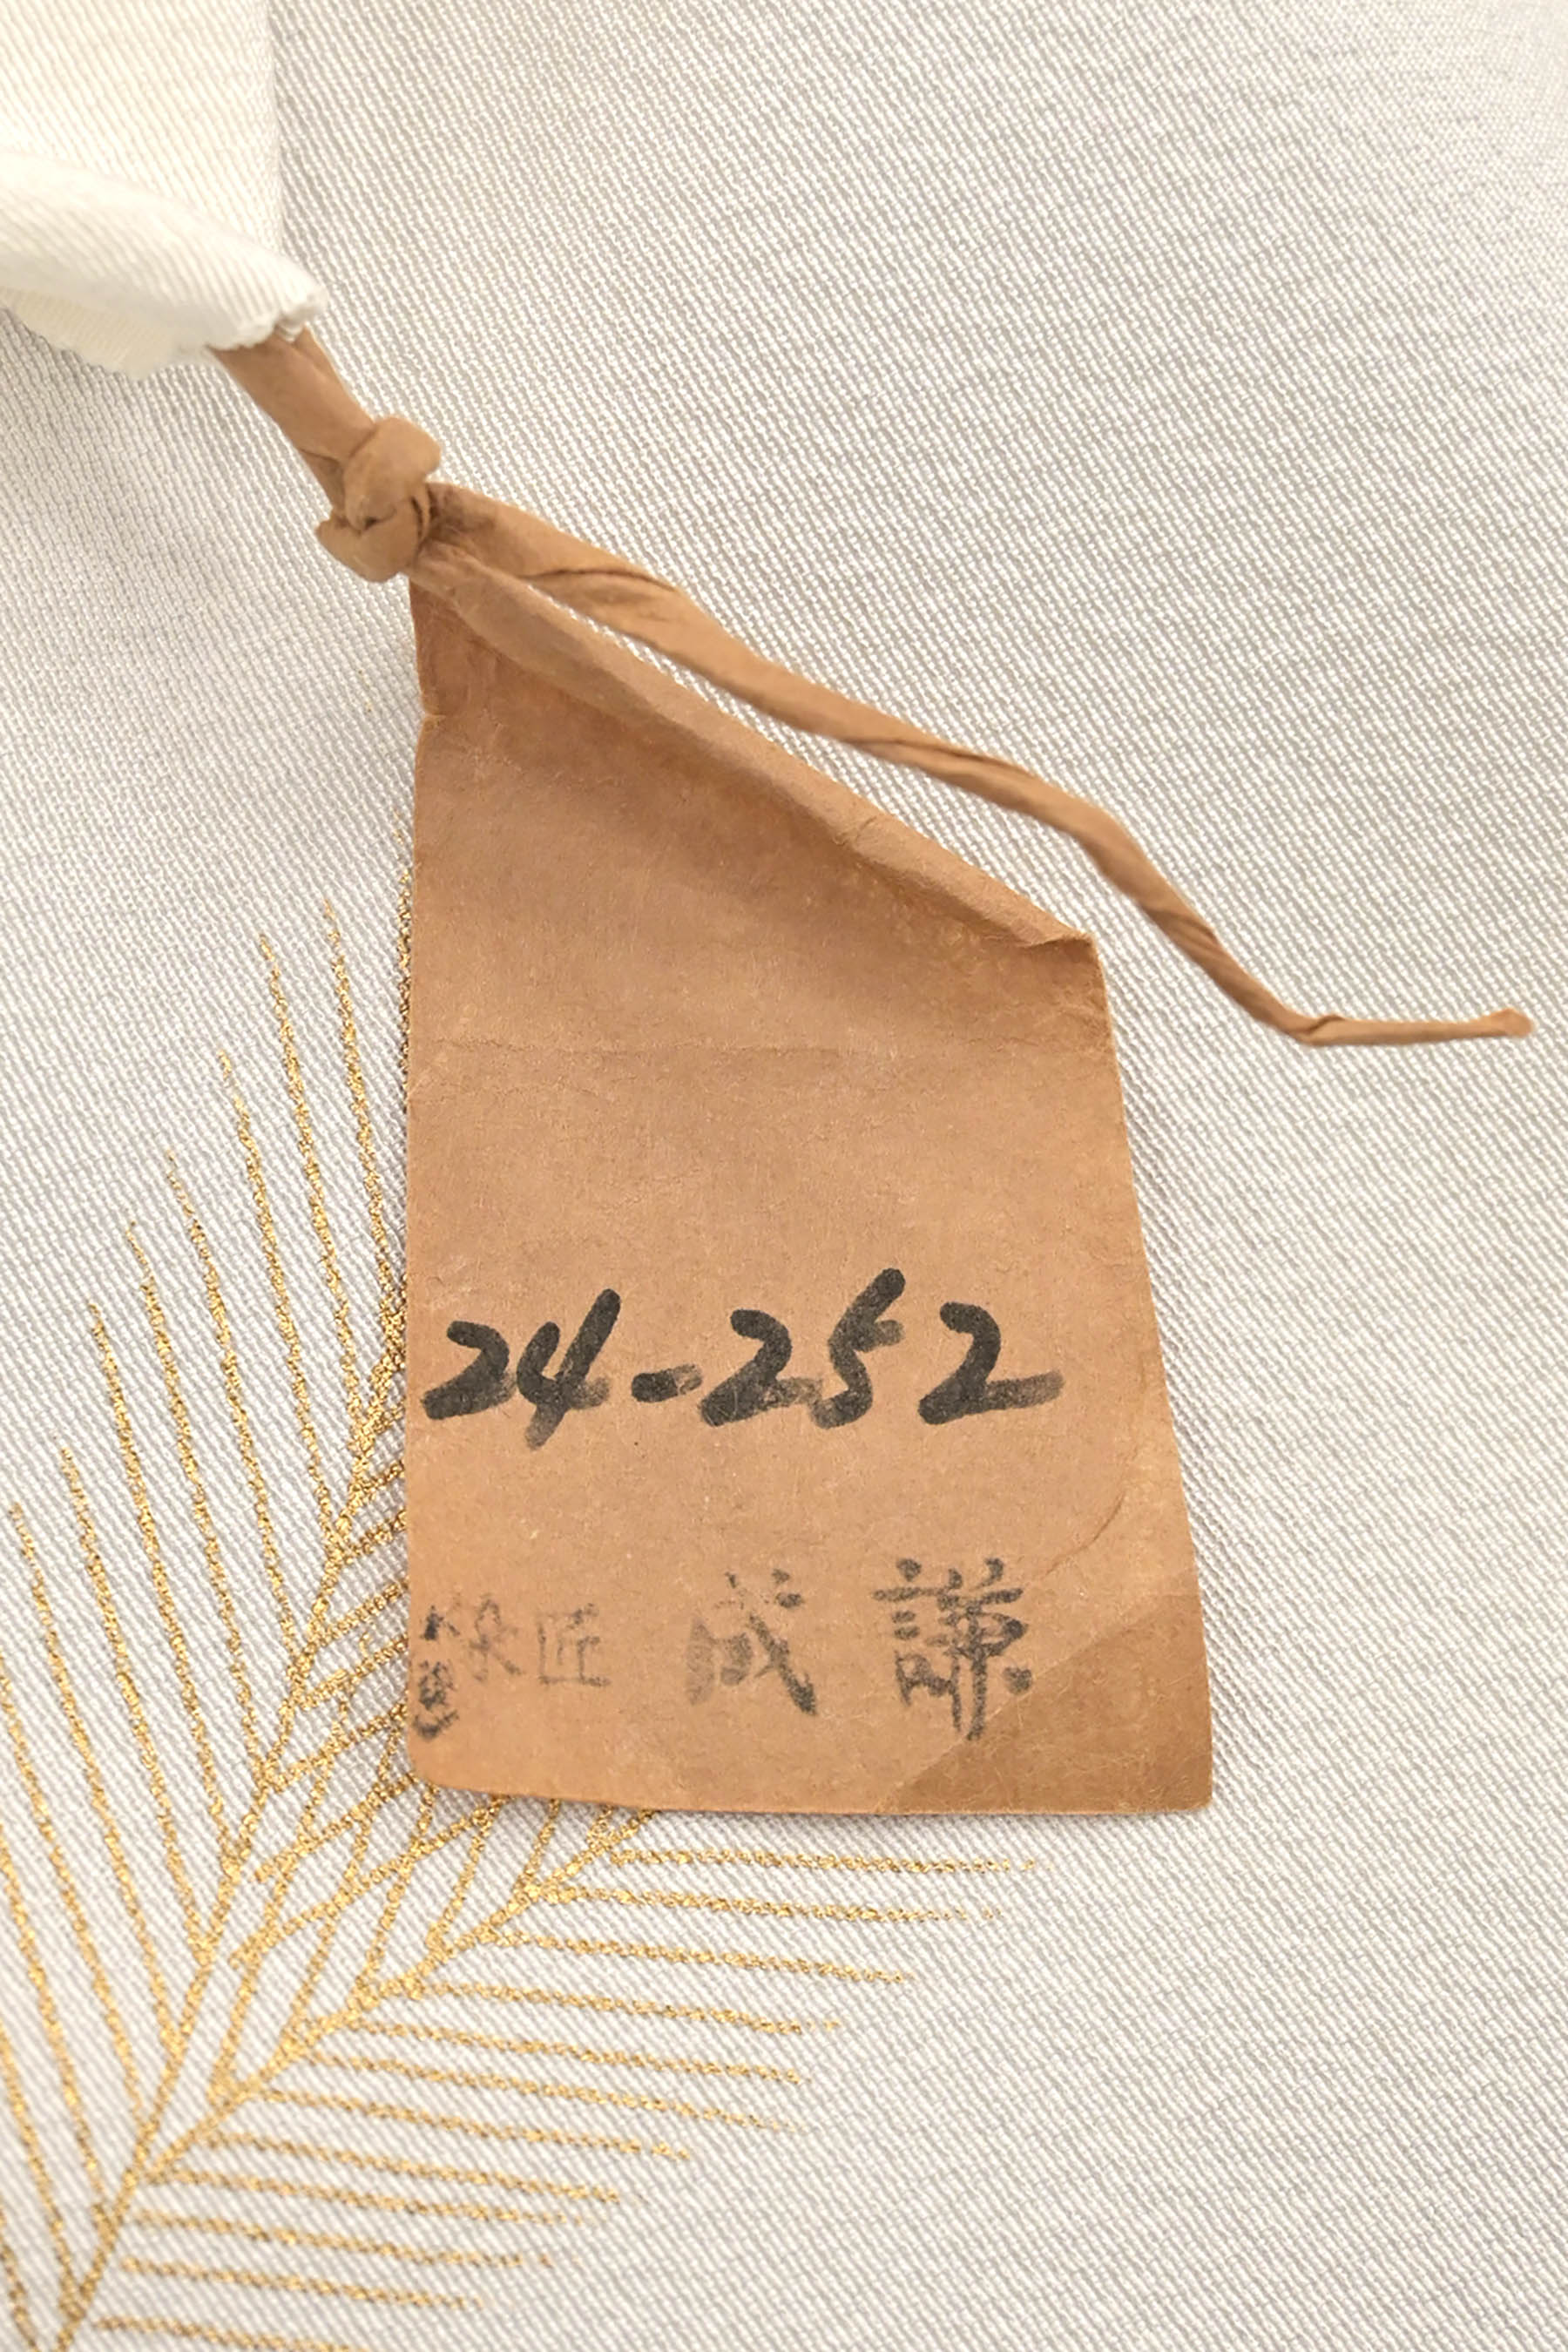 24-252
染匠 成謙